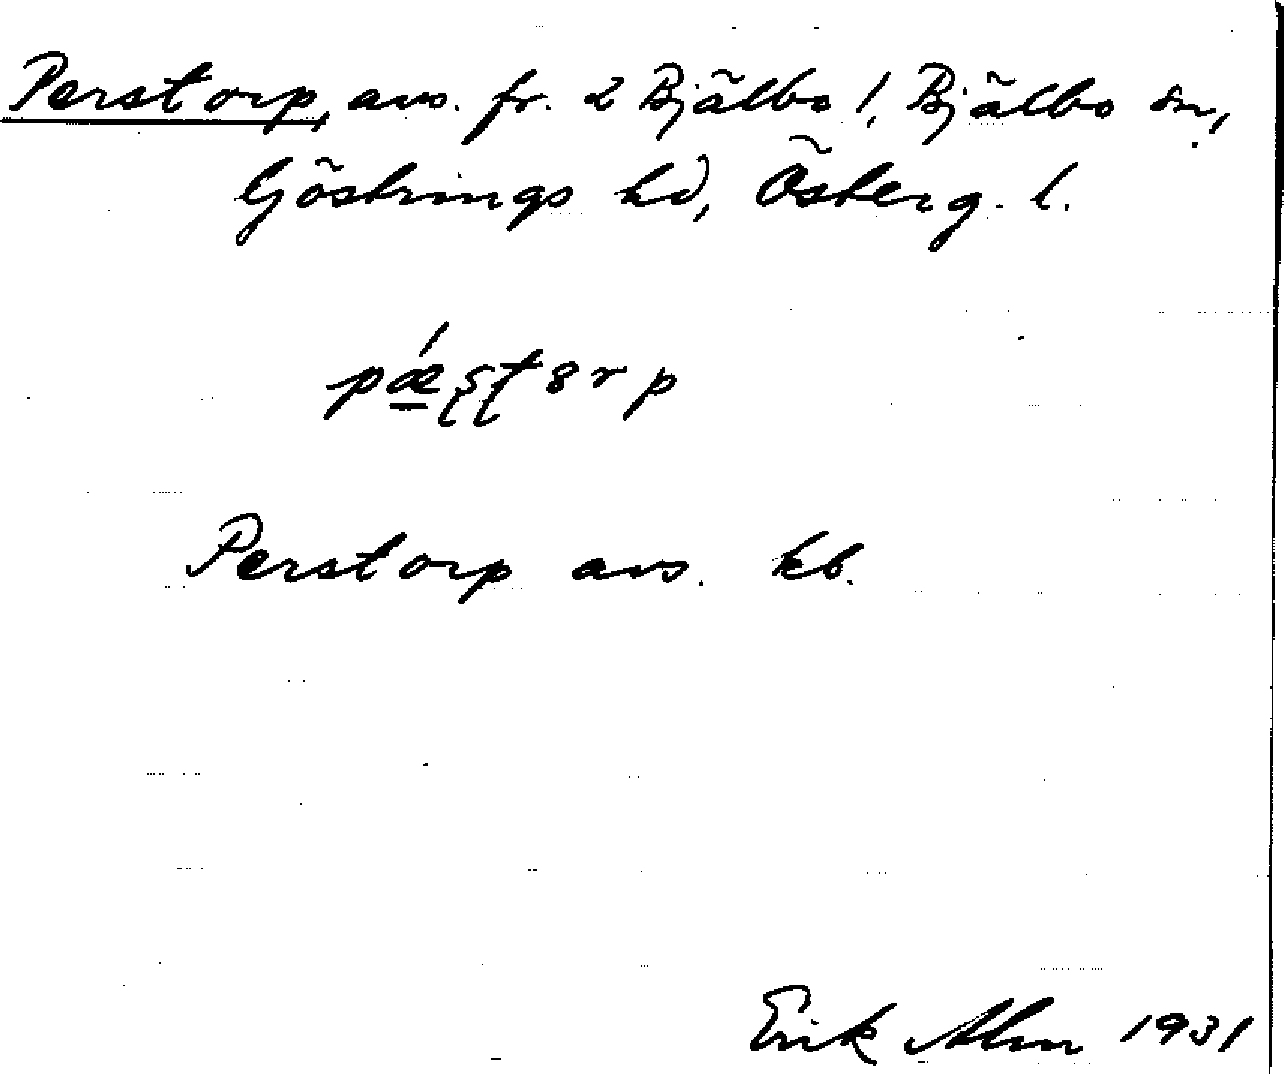 Perstorp, avs. fr. 2 Bjälbo l, Bjälbo sn,
Göstrings hd, Österg. l.
Perstorp avs. kb.
Erik Alm 1931